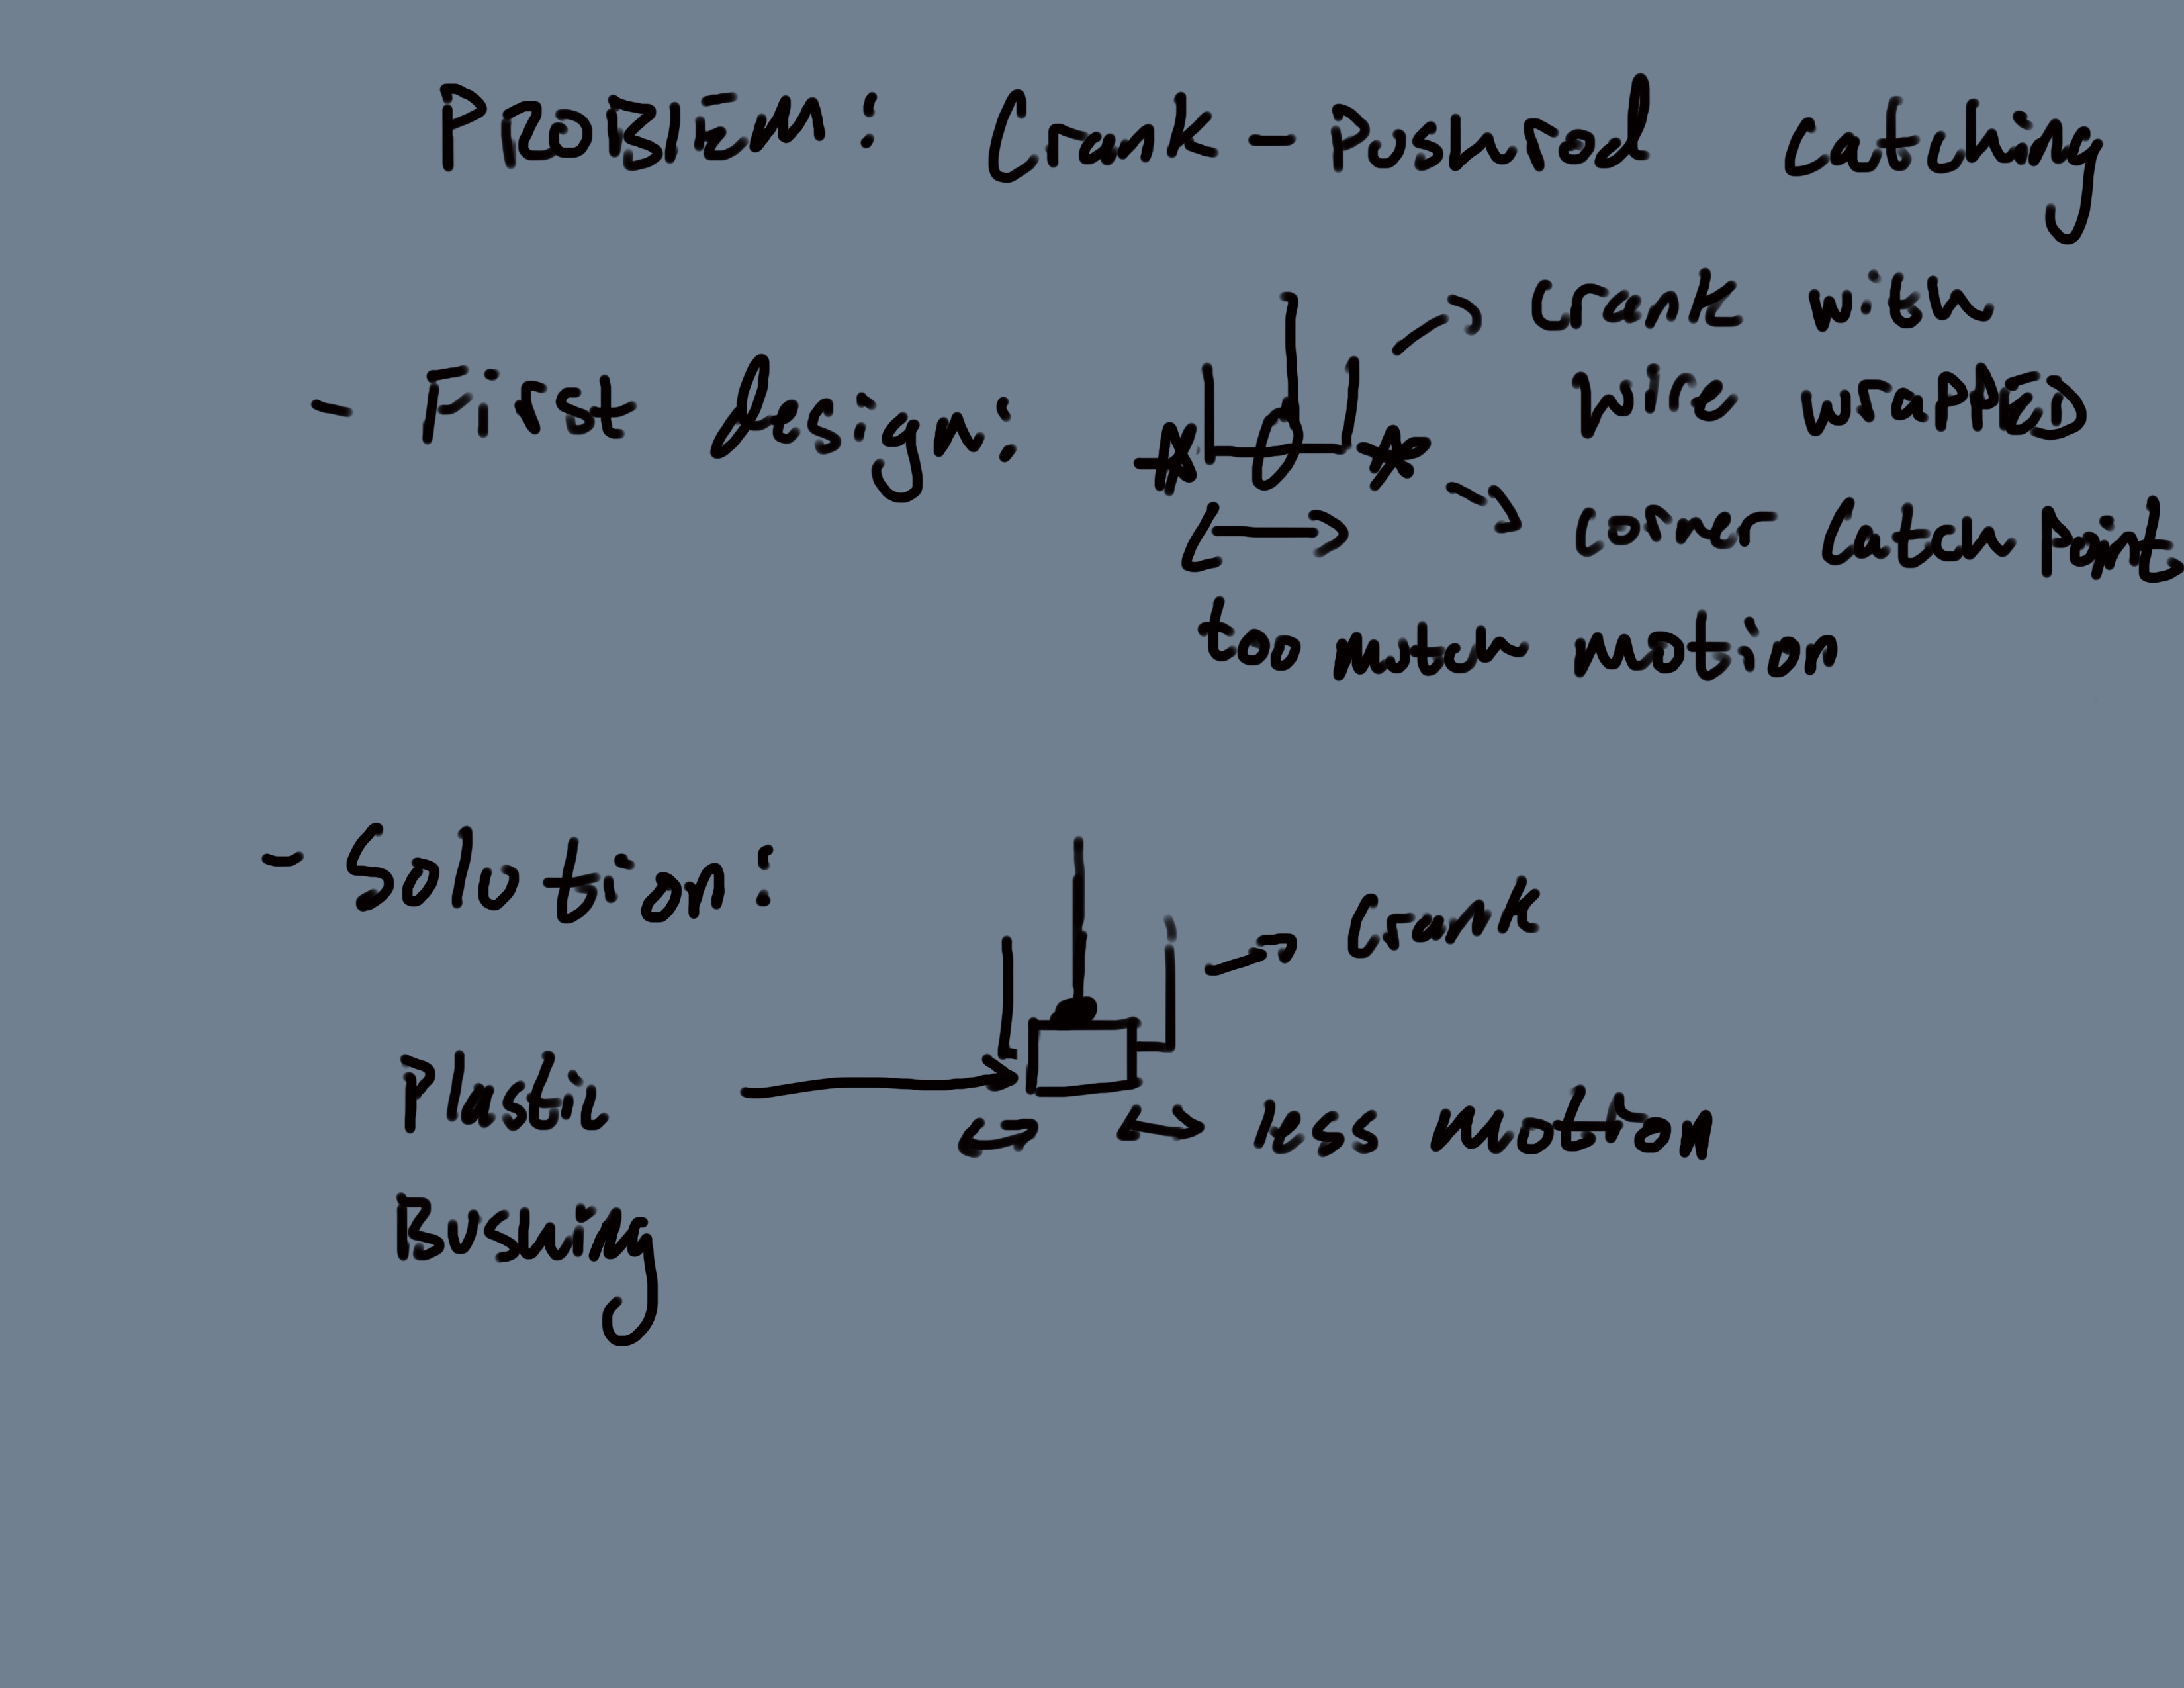 Problem: Crank-Pushrod catching
- First design:
crank with
wire wrapped
corner catch point
too mutch motion
- Solution:
Crank
Plastic
less motion
Bushing